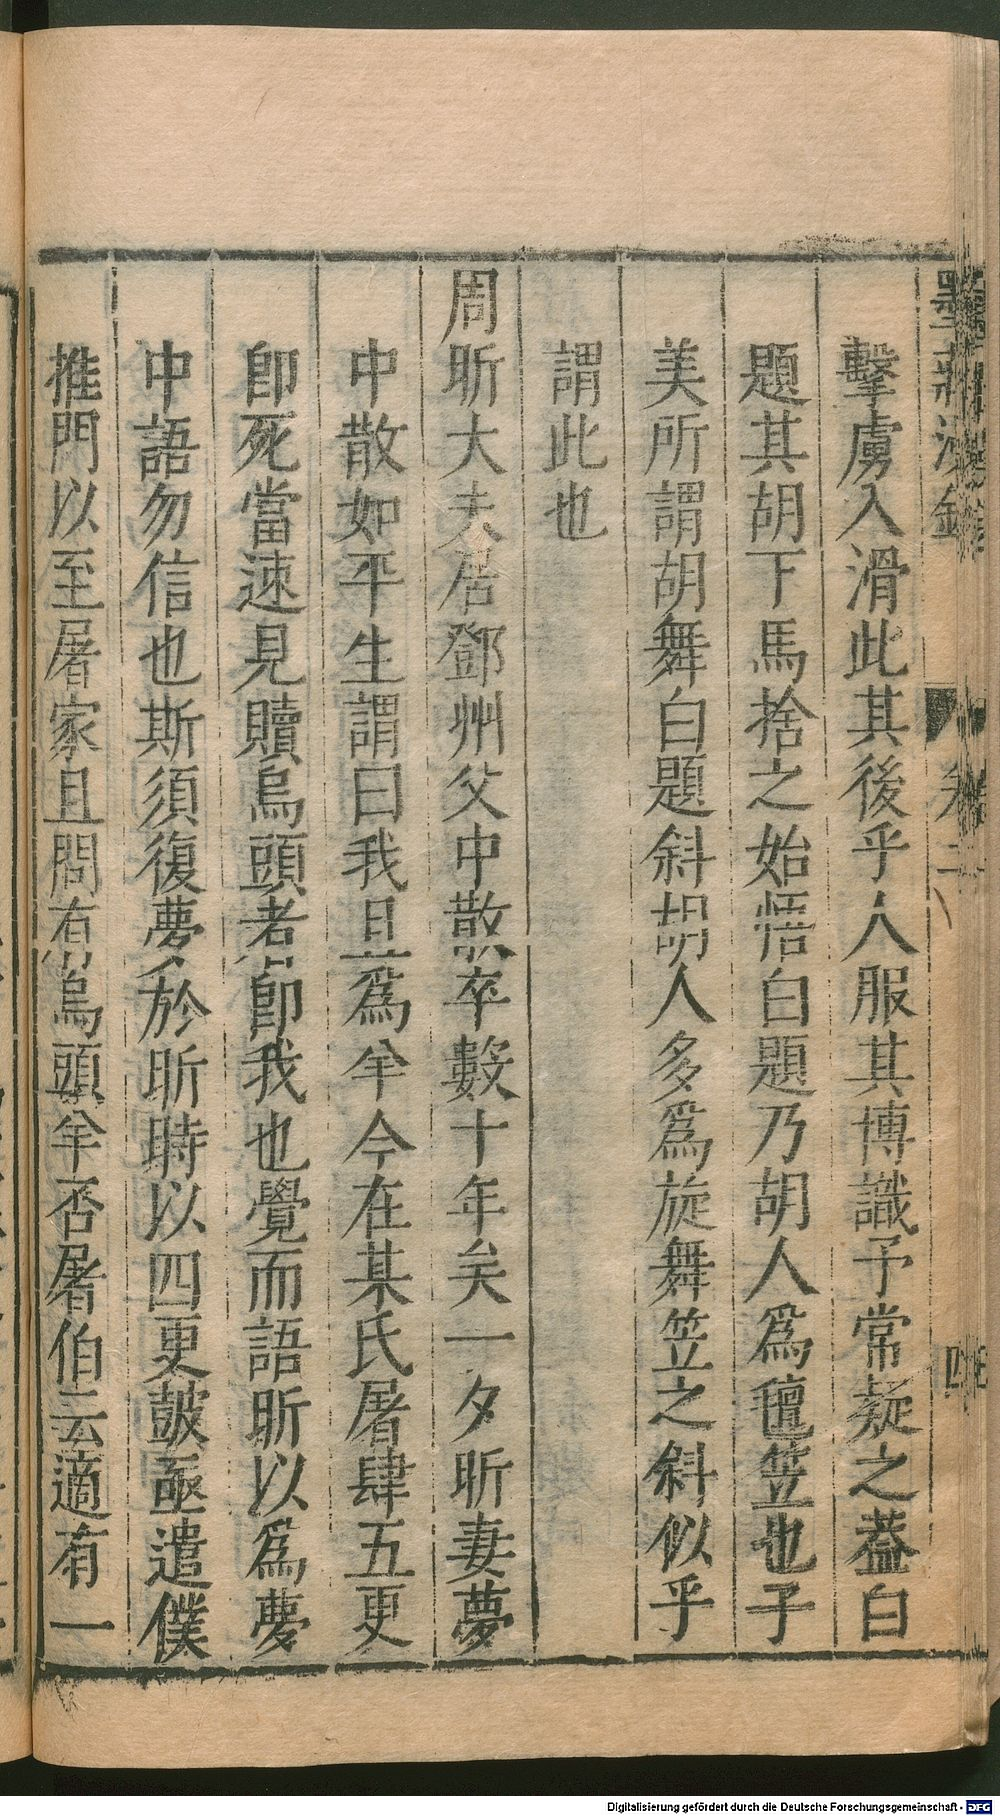 墨莊漫錄
卷二
四
擊虜入滑此其後乎人服其博識予常疑之蓋白
題其胡下馬捨之始悟白題乃胡人爲氊笠也子
美所謂胡舞白題斜胡人多爲旋舞笠之斜似乎
謂此也
周昕大夫居鄧州父中散卒數十年矣一夕昕妻夢
中散如平生謂曰我旦爲羊今在某氏屠肆五更
卽死當速見贖烏頭者卽我也覺而語昕以爲夢
中語勿信也斯須復夢於昕時以四更皷亟遣僕
推門以至屠家且問有烏頭羊否屠伯云適有一
Digitalisierung gefördert durch die Deutsche Forschungsgemeinschaft - DFG